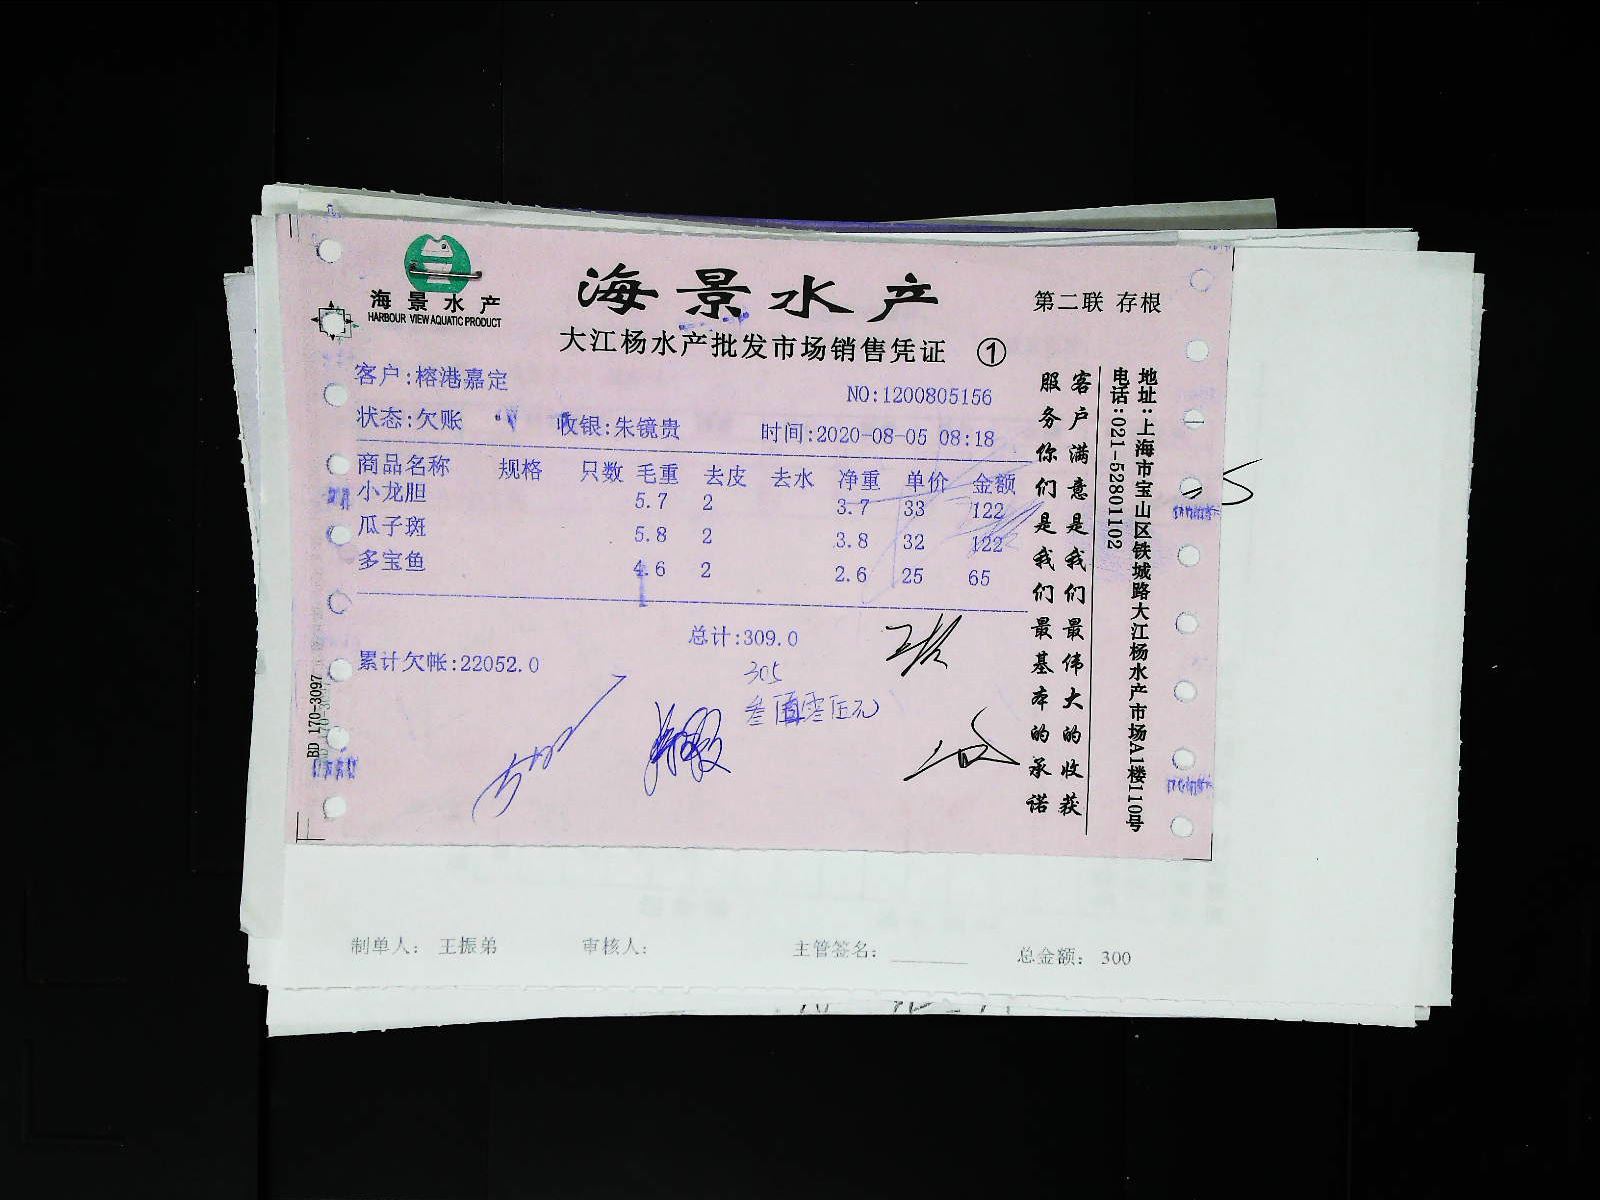 海景水产
HARBOUR VIEW AQUATIC PRODUCT
海景水产
第二联 存根
大江杨水产批发市场销售凭证 ①
客户:榕港嘉定
NO:1200805156
状态:欠账 收银:朱镜贵 时间:2020-08-05 08:18
商品名称 规格 只数 毛重 去皮 去水 净重 单价 金额
小龙胆 5.7 2 3.7 33 122
瓜子斑 5.8 2 3.8 32 122
多宝鱼 4.6 2 2.6 25 65
总计:309.0
累计欠帐:22052.0
305
叁佰零伍元
客户满意是我们最伟大的收获
服务你们是我们最基本的承诺
地址:上海市宝山区铁城路大江杨水产市场A1楼110号
电话:021-52801102
BD 170-3097
制单人: 王振弟 审核人: 主管签名: 总金额: 300